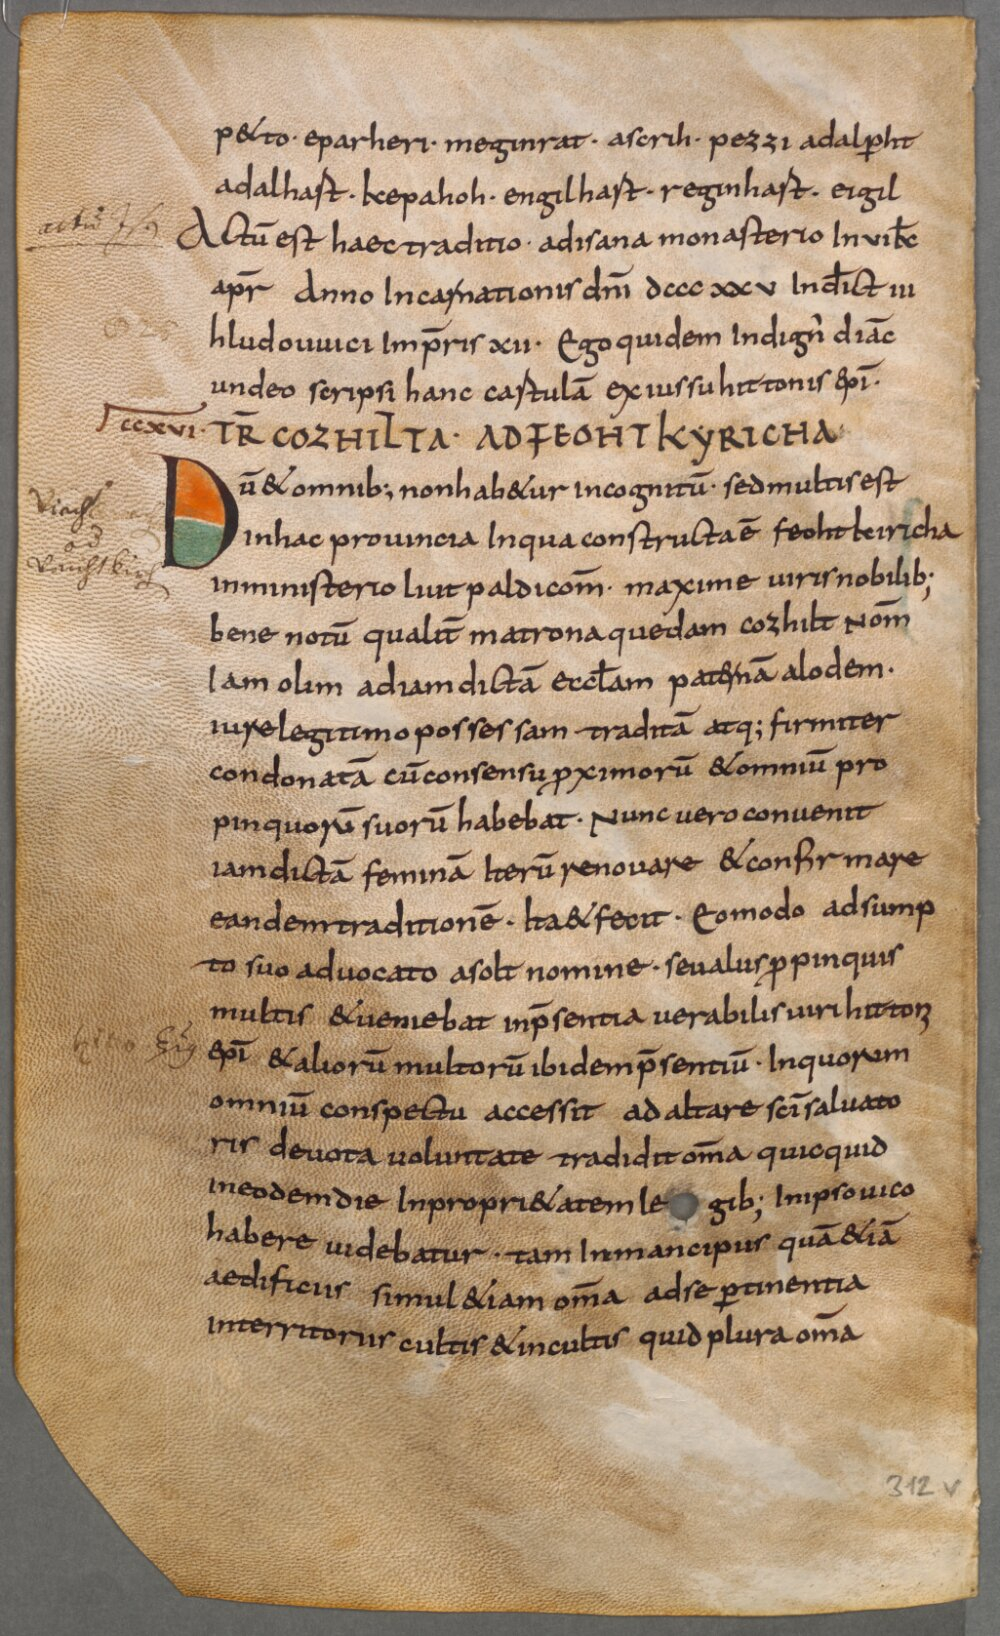 p&to· eparheri· meginrat· ascrih· pezzi adalꝑht
adalhast· kepahoh· engilhast· reginhast· eigil
Actū est haec traditio· adisana monasterio In vi k̄c
apr̄ Anno Incarnationis dn̄i dcccxxv Ind̄ict iii
hludouuici Imp̄ris xii· Ego quidem Indign̄ diāc
undeo scripsi hanc castulā ex iussu hittonis ep̄i·
ccxvi· TR̄ COZHILTA· AD FEOHTKYRICHA
Dū & omnib; non hab&ur incognitū· sed multis est
in hac prouincia In qua constructa ē feohtkiricha
in ministerio liutpaldi com̄· maxime uiris nobilib;
bene notū qualit̄ matrona quedam cozhilt Nom̄
Iam olim ad iam dictā eccl̄am paternā alodem·
iure legitimo possessam traditā atq; firmiter
condonatā cū consensu ꝓximorū & omniū pro
pinquorū suorū habebat· Nunc uero conuenit
iam dictā feminā Iterū renouare & confirmare
eandem traditionē· Ita & fecit· Eo modo adsump
to suo aduocato asolt nomine· seu aliis ꝓpinquis
multis & ueniebat in p̄sentia uerabilis uiri hitton
ep̄i & aliorū multorū ibidem p̄sentiū· In quorum
omniū conspectu accessit ad altare sc̄i saluato
ris deuota uoluntate tradidit om̄a quicquid
in eodem die In propri&atem le gib; In ipso uico
habere uidebatur· tam In mancipiis quā & iā
aedificiis simul & iam om̄a ad se ꝑtinentia
in territoriis cultis & incultis quid plura om̄a
312 v